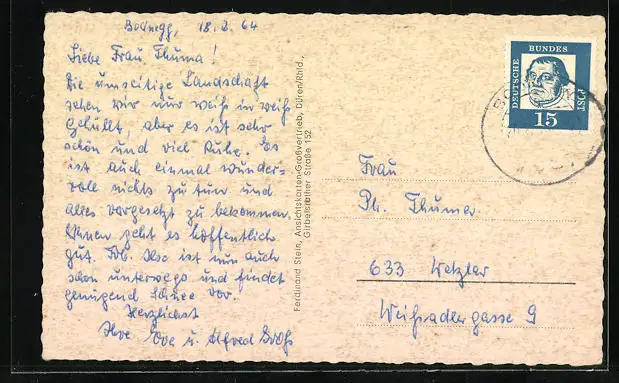 Bodnegg, 18.2.64
Liebe Frau Thuma!
Die umseitige Landschaft
sehen wir nur weiß in weiß
gehüllt, aber es ist sehr
schön und viel Ruhe. Es
ist auch einmal wunder-
voll nichts zu tun und
alles vorgesetzt zu bekommen.
Ihnen geht es hoffentlich
gut. Ilse ist nun auch
schon unterwegs und findet
genügend Schnee vor.
Herzlichst
Ihre Eve u. Alfred
Ferdinand Stein, Ansichtskarten-Großvertrieb, Düren/Rhld.,
Girbelsrather Straße 152
DEUTSCHE
BUNDES
POST
15
Frau
Ph. Thuma
633 Wetzlar
Weißadlergasse 9